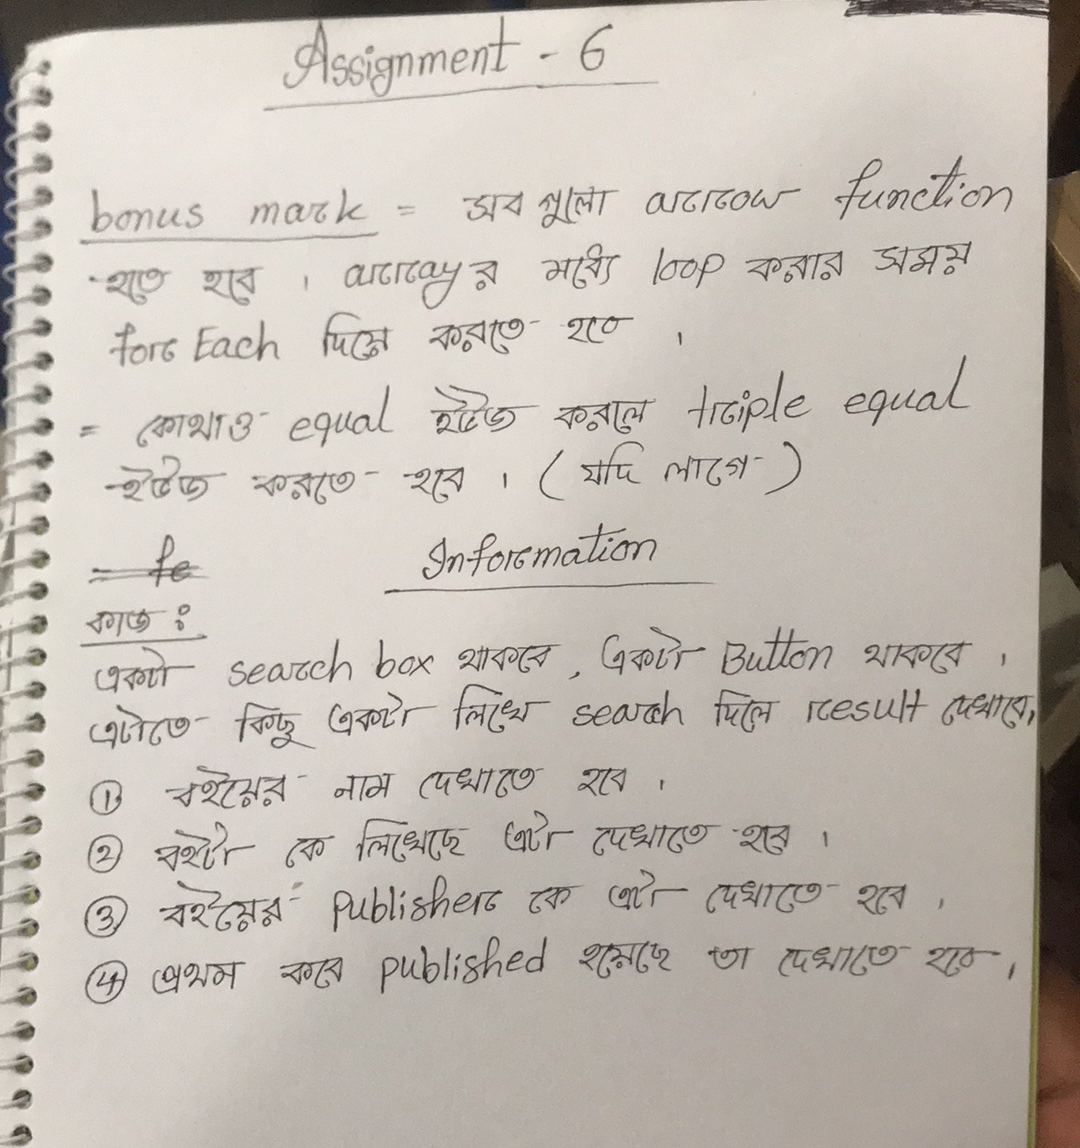 Assignment - 6
bonus mark = সব গুলো arrow function
হতে হবে । array র মধ্যে loop করার সময়
for Each দিয়ে করতে হবে ।
= কোথাও equal ইউজ করলে triple equal
ইউজ করতে হবে । ( যদি লাগে )
= fe
Information
কাজ :
একটা search box থাকবে, একটা Button থাকবে ।
এটাতে কিছু একটা লিখে search দিলে result দেখাবে,
① বইয়ের নাম দেখাতে হবে ।
② বইটা কে লিখেছে এটা দেখাতে হবে ।
③ বইয়ের publisher কে এটা দেখাতে হবে ।
④ প্রথম কবে published হয়েছে তা দেখাতে হবে ।